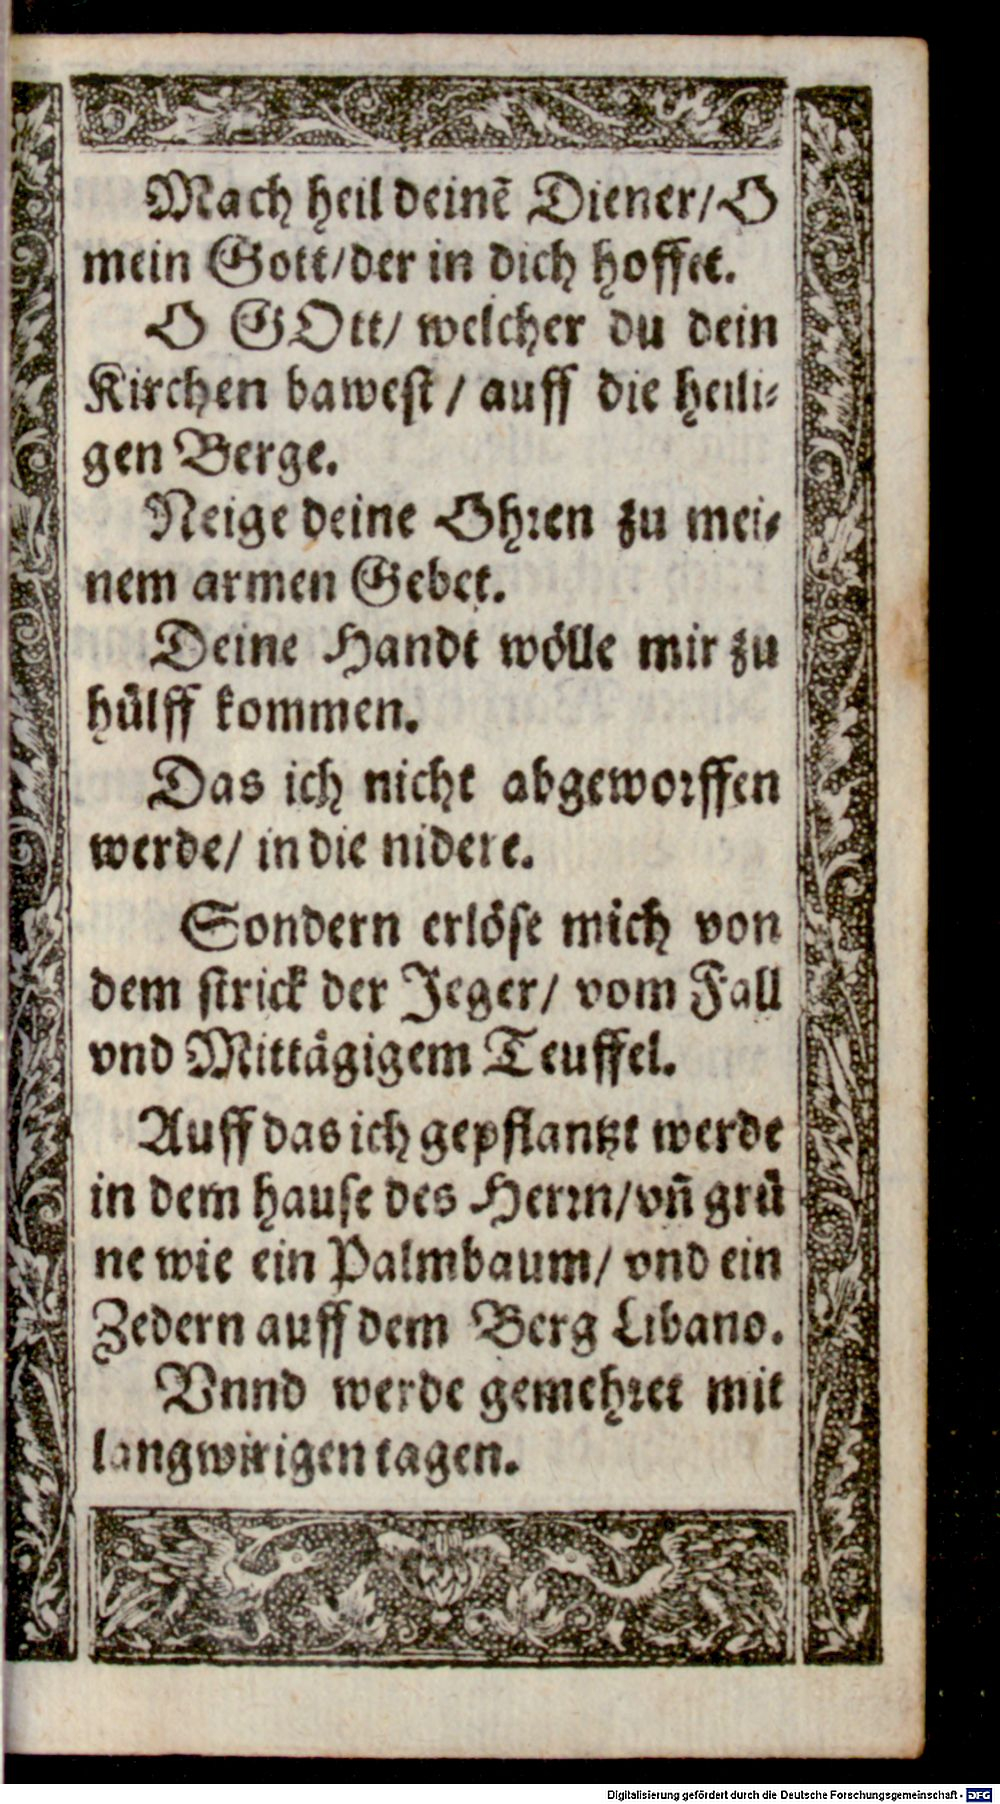 Mach heil deinẽ Diener/ O
mein Gott/ der in dich hoffet.
O GOtt/ welcher du dein
Kirchen bawest / auff die heili⸗
gen Berge.
Neige deine Ohren zu mei⸗
nem armen Gebet.
Deine Handt wölle mir zu
hülff kommen.
Das ich nicht abgeworffen
werde/ in die nidere.
Sondern erlöse mich von
dem strick der Jeger/ vom Fall
vnd Mittägigem Teuffel.
Auff das ich gepflantzt werde
in dem hause des Herrn/ vñ grü
ne wie ein Palmbaum/ vnd ein
Zedern auff dem Berg Libano.
Vnnd werde gemehret mit
langwirigen tagen.
Digitalisierung gefördert durch die Deutsche Forschungsgemeinschaft - DFG